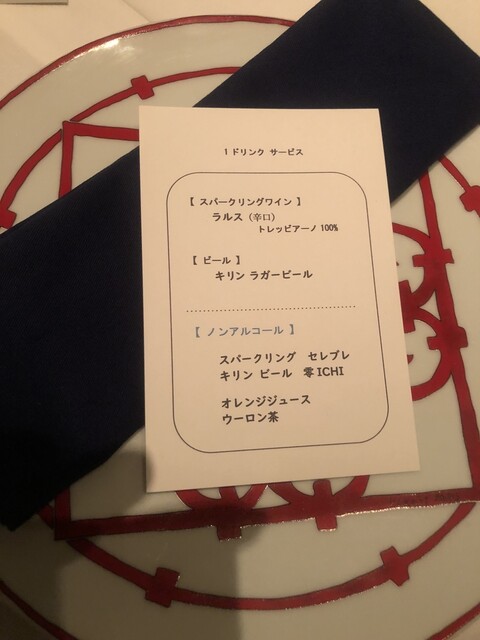 1ドリンク サービス
【 スパークリングワイン 】
ラルス（辛口）
トレッビアーノ 100%
【 ビール 】
キリン ラガービール
【 ノンアルコール 】
スパークリング セレブレ
キリン ビール 零ICHI
オレンジジュース
ウーロン茶